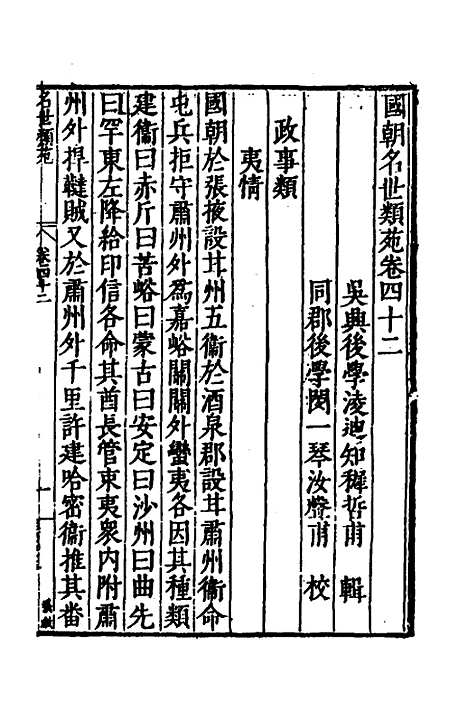 國朝名世類苑卷四十二
吳興後學淩迪知穉哲甫 輯
同郡後學閔一琴汝聲甫 校
政事類
夷情
國朝於張掖設甘州五衞於酒泉郡設甘肅州衞命
屯兵拒守肅州外爲嘉峪關關外蠻夷各因其種類
建衞曰赤斤曰苦峪曰蒙古曰安定曰沙州曰曲先
曰罕東左降給印信各命其酋長管束夷衆內附肅
州外捍韃賊又於肅州外千里許建哈密衞推其畨
名世類苑
卷四十二
一